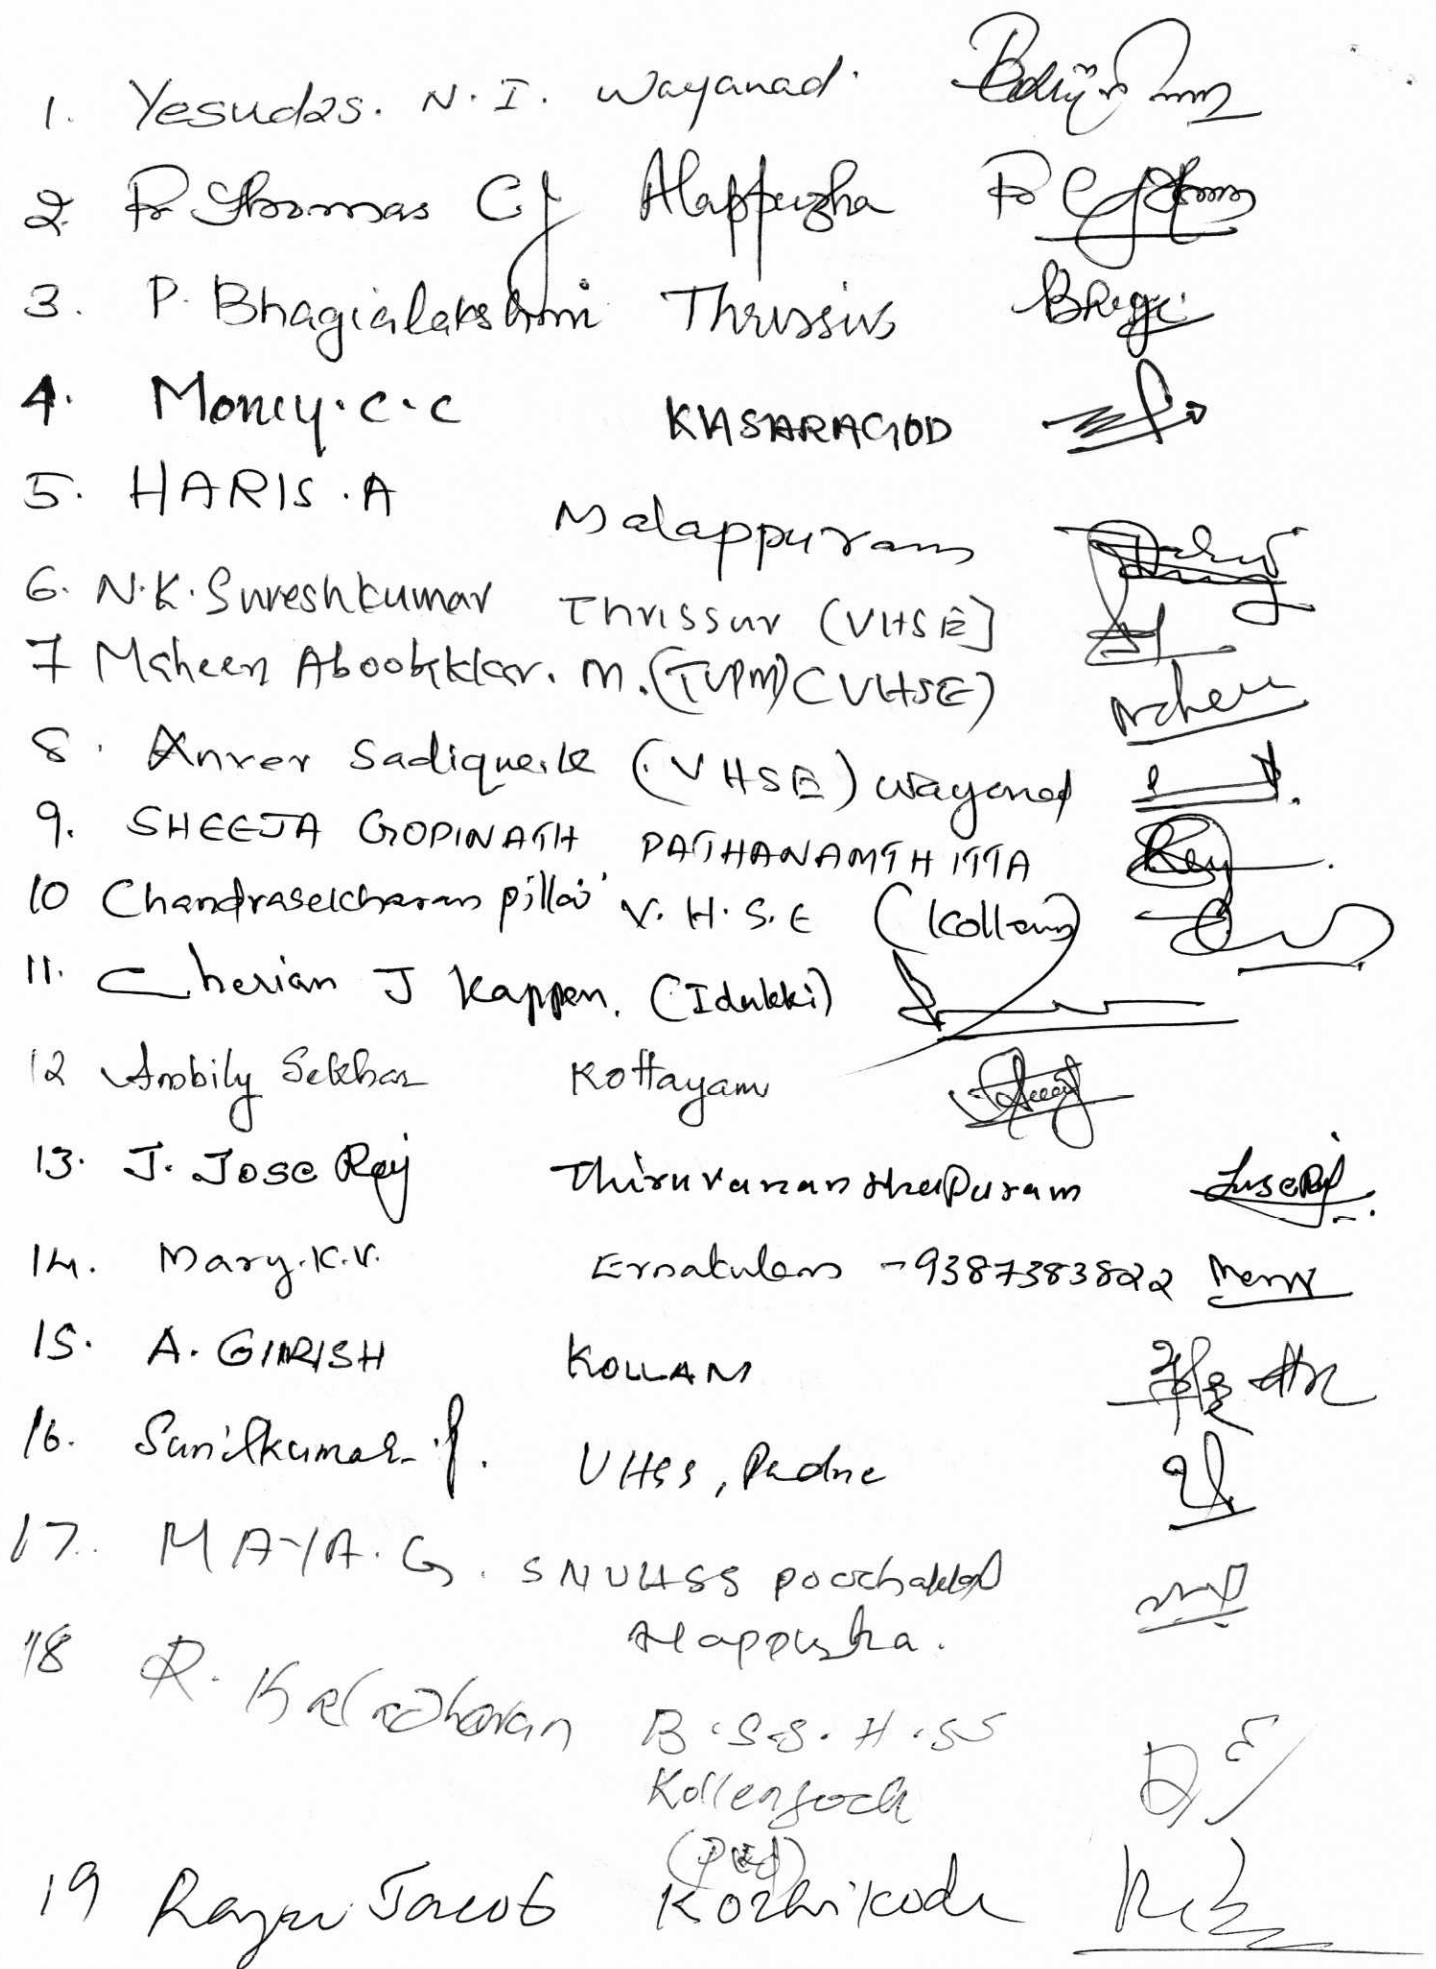 1. Yesudas. N. I. Wayanad.
2. Fr Thomas C J Alappuzha
3. P. Bhagialakshmi Thrissur Bhagi
4. Money. C. C KASARAGOD
5. HARIS. A Malappuram
6. N.K. Sureshkumar Thrissur (VHSE]
7 Maheen Aboobakkar. M. (TVPM) (VHSE)
8. Anver Sadique.K (VHSE) Wayanad
9. SHEEJA GOPINATH PATHANAMTHITTA
10 Chandrasekharan pillai V. H. S. E (Kollam)
11. Cherian J Kappen. (Idukki)
12 Ambily Sekhar Kottayam
13. J. Jose Raj Thiruvananthapuram
14. Mary. K. V. Ernakulam - 9387383822
15. A. GIRISH KOLLAM
16. Sunilkumar. P. VHSS, Padne
17. MAYA. G. SNVHSS poochakkal
Alappuzha.
18 R. Kaladharan B.S.S.H.SS
Kollengode
(Pkd)
19 Jacob Kozhikode